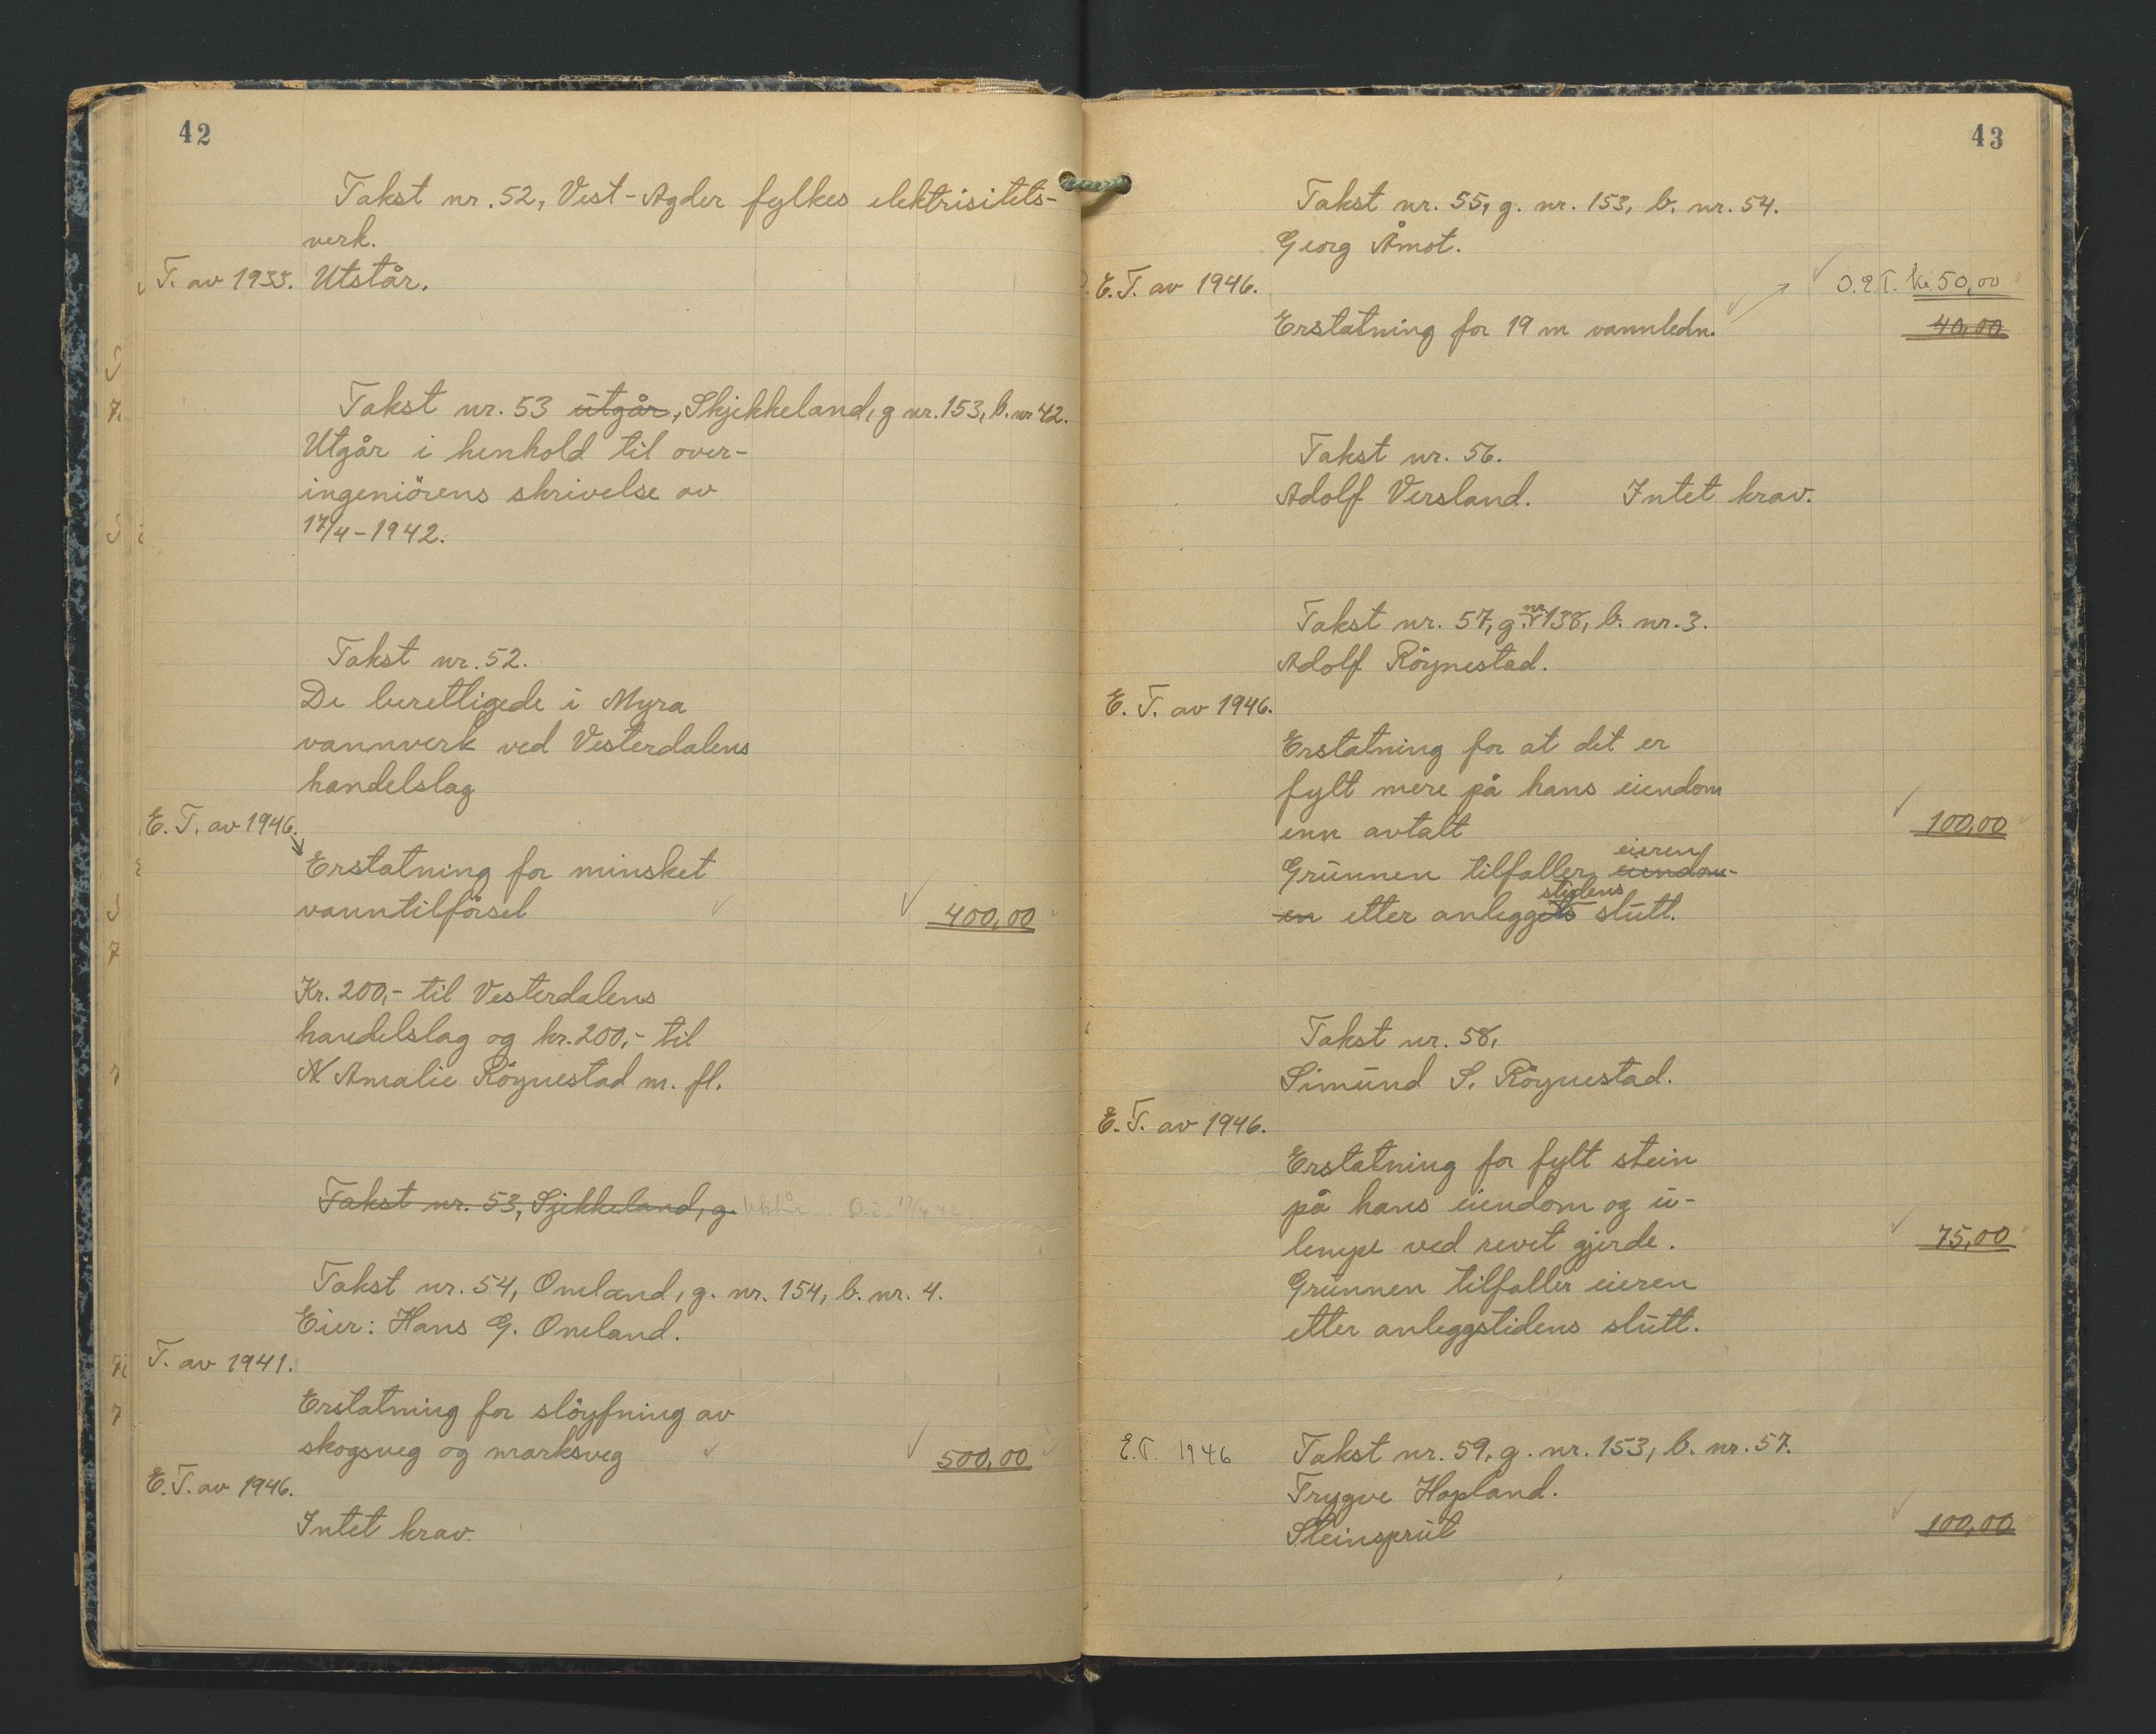 42
Takst nr. 52, Vest-Agder fylkes elektrisitets-
verk.
T. av 1935. Utstår.
Takst nr. 53 utgår, Skjekkeland, g nr. 153, b. nr 42.
Utgår i henhold til over-
ingeniörens skrivelse av
17/4-1942.
Takst nr. 52.
De berettigede i Myra
vannverk ved Vesterdalens
handelslag
E. T. av 1946.
Erstatning for minsket
vanntilförsel 400,00
Kr. 200,- til Vesterdalens
handelslag og kr. 200,- til
Amalie Röynestad m. fl.
Takst nr. 53, Sjekkeland, g.
Takst nr. 54, Omland, g. nr. 154, b. nr. 4.
Eier: Hans G. Omland.
T. av 1941.
Erstatning for slöyfning av
skogsveg og marksveg 500,00
E. T. av 1946.
Intet krav.
43
Takst nr. 55, g. nr. 153, b. nr. 54.
Georg Åmot.
E. T. av 1946. O.E.T. kr. 50,00
Erstatning for 19 m vannledn. 40,00
Takst nr. 56.
Adolf Versland. Intet krav.
Takst nr. 57, g. nr. 138, b. nr. 3.
Adolf Röynestad.
E. T. av 1946.
Erstatning for at det er
fylt mere på hans eiendom
enn avtalt 100,00
Grunnen tilfaller eieren eiendom-
en etter anleggets stidens slutt.
Takst nr. 58,
Simund S. Röynestad.
E. T. av 1946.
Erstatning for fylt stein
på hans eiendom og u-
lempe ved revet gjerde. 75,00
Grunnen tilfaller eieren
etter anleggstidens slutt.
E.T. 1946 Takst nr. 59, g. nr. 153, b. nr. 57.
Trygve Hopland.
Steinsprut 100,00